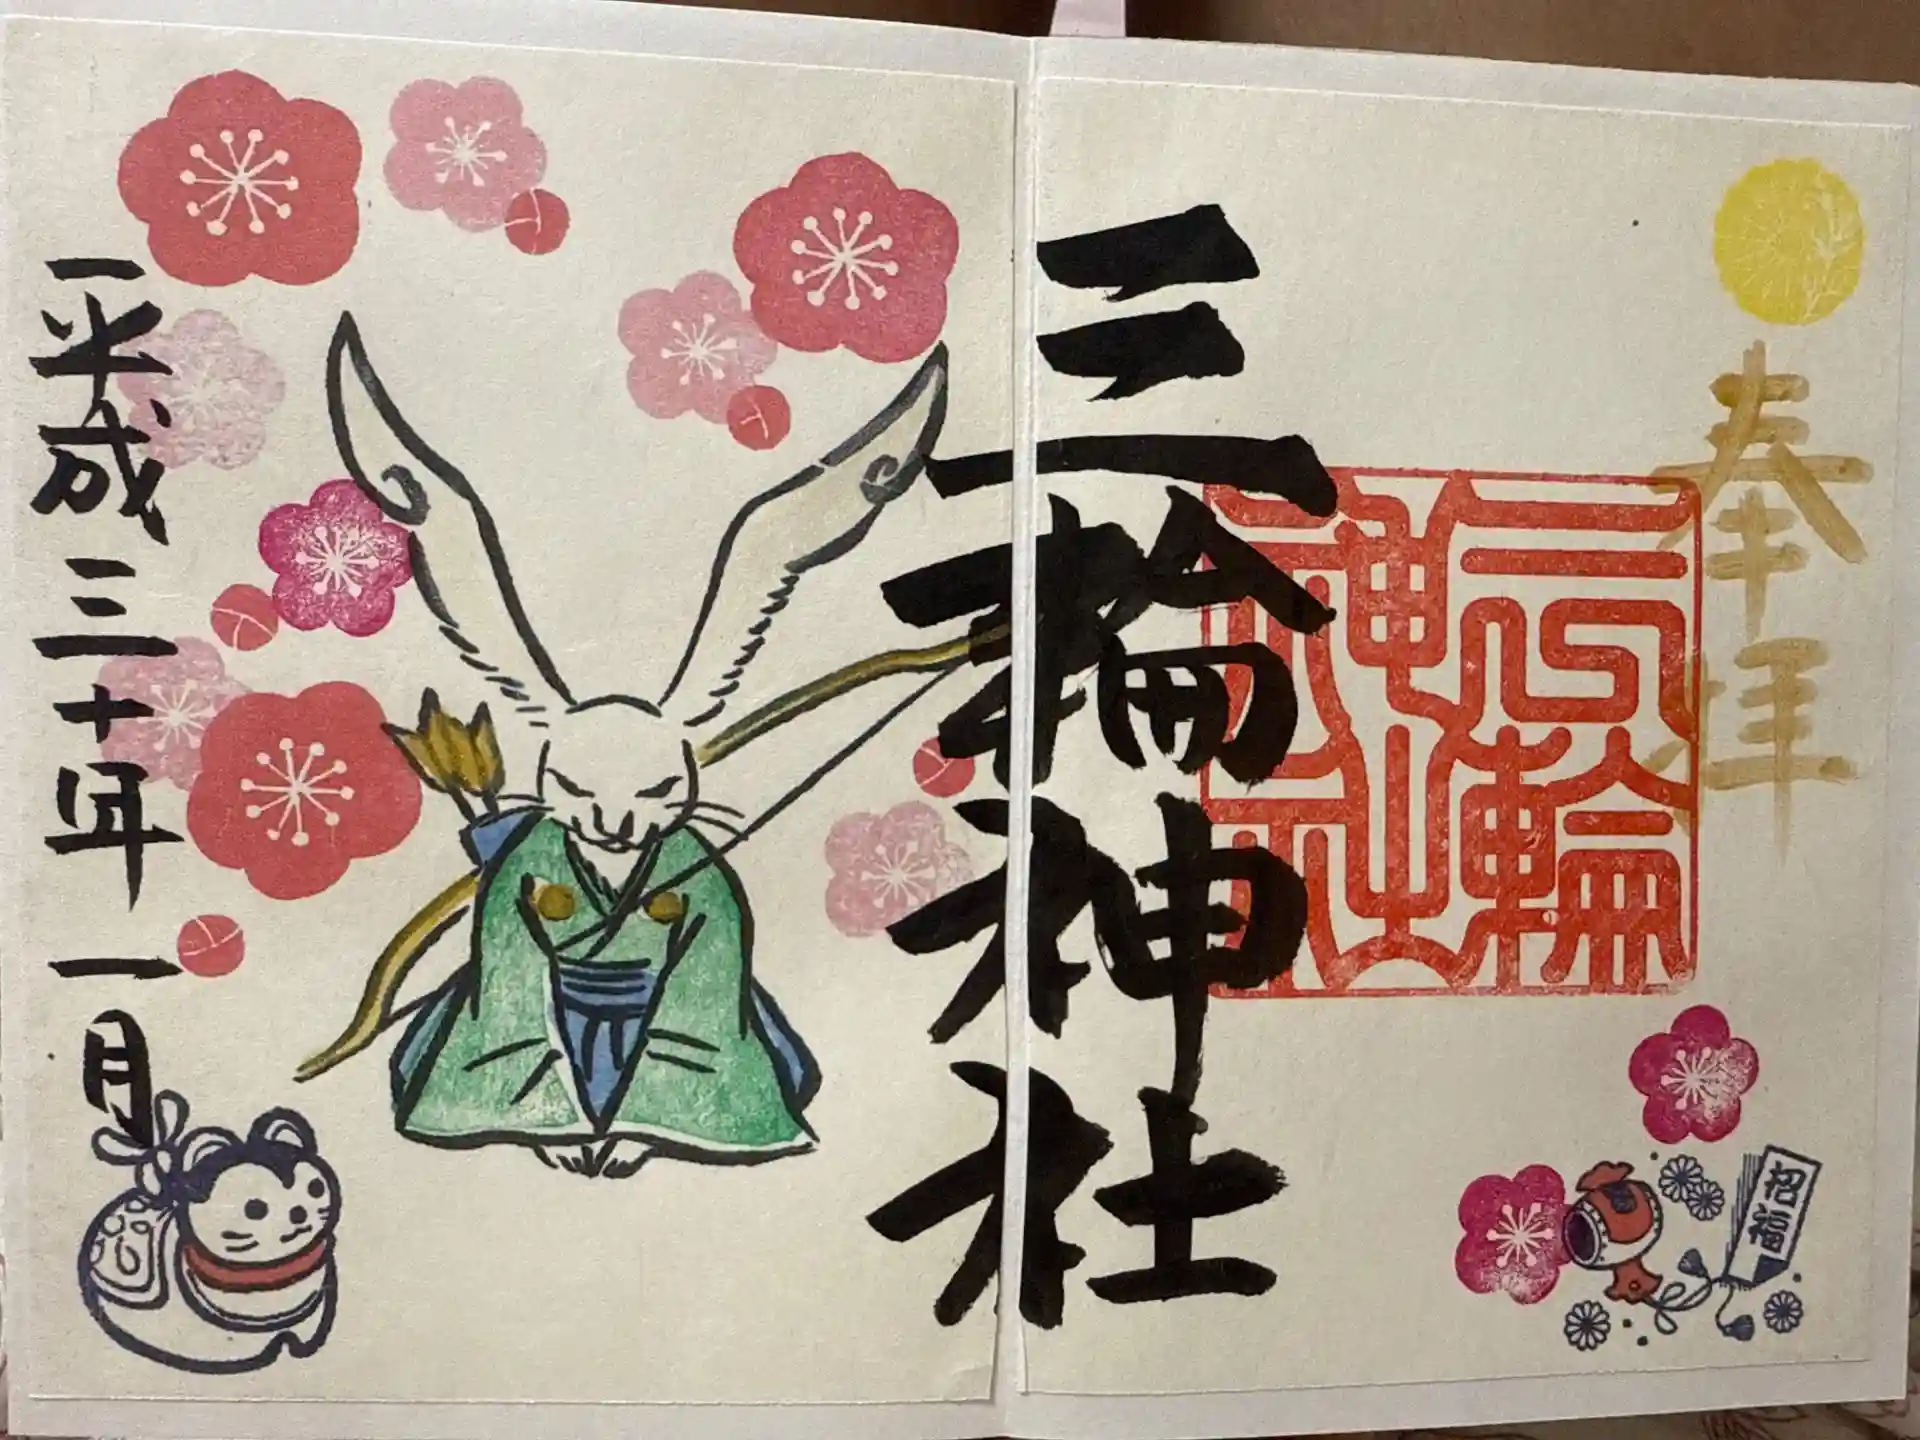 奉拝
三輪神社
三輪神社
平成三十一年一月
招福